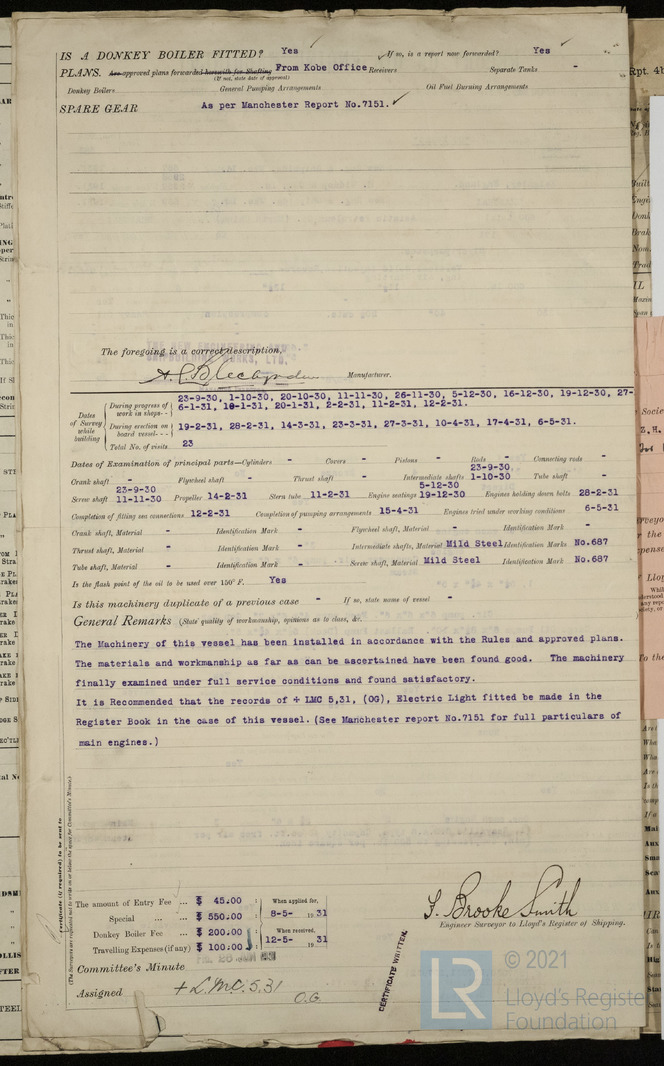 IS A DONKEY BOILER FITTED? Yes If so, is a report now forwarded? Yes
PLANS. Are approved plans forwarded herewith for Shafting From Kobe Office Receivers Separate Tanks -
(If not, state date of approval)
Donkey Boilers General Pumping Arrangements Oil Fuel Burning Arrangements
SPARE GEAR As per Manchester Report No.7151.
The foregoing is a correct description,
Manufacturer.
Dates of Survey while building
During progress of work in shops - - 23-9-30, 1-10-30, 20-10-30, 11-11-30, 26-11-30, 5-12-30, 16-12-30, 19-12-30, 27-
6-1-31, 10-1-31, 20-1-31, 2-2-31, 11-2-31, 12-2-31.
During erection on board vessel - - - 19-2-31, 28-2-31, 14-3-31, 23-3-31, 27-3-31, 10-4-31, 17-4-31, 6-5-31.
Total No. of visits 23
Dates of Examination of principal parts—Cylinders - Covers - Pistons - Rods - Connecting rods -
Crank shaft - Flywheel shaft - Thrust shaft - Intermediate shafts 23-9-30 1-10-30 5-12-30 Tube shaft -
Screw shaft 23-9-30 11-11-30 Propeller 14-2-31 Stern tube 11-2-31 Engine seatings 19-12-30 Engines holding down bolts 28-2-31
Completion of fitting sea connections 12-2-31 Completion of pumping arrangements 15-4-31 Engines tried under working conditions 6-5-31
Crank shaft, Material - Identification Mark - Flywheel shaft, Material - Identification Mark -
Thrust shaft, Material - Identification Mark - Intermediate shafts, Material Mild Steel Identification Marks No.687
Tube shaft, Material - Identification Mark - Screw shaft, Material Mild Steel Identification Mark No.687
Is the flash point of the oil to be used over 150° F. Yes
Is this machinery duplicate of a previous case - If so, state name of vessel -
General Remarks (State quality of workmanship, opinions as to class, &c.
The Machinery of this vessel has been installed in accordance with the Rules and approved plans.
The materials and workmanship as far as can be ascertained have been found good. The machinery
finally examined under full service conditions and found satisfactory.
It is Recommended that the records of + LMC 5,31, (OG), Electric Light fitted be made in the
Register Book in the case of this vessel. (See Manchester report No.7151 for full particulars of
main engines.)
Certificate (if required) to be sent to
(The Surveyors are requested not to write on or below the space for Committee's Minute.)
The amount of Entry Fee ... $ 45.00 : When applied for,
Special ... ... $ 550.00 : 8-5- 19 31
Donkey Boiler Fee ... $ 200.00 : When received,
Travelling Expenses (if any) $ 100.00 : 12-5- 19 31
Committee's Minute
Assigned + L.M.C. 5.31
O.G.
CERTIFICATE WRITTEN.
J. Brooke Smith
Engineer Surveyor to Lloyd's Register of Shipping.
LR
© 2021
Lloyd's Registe
Foundation
Rpt. 4b